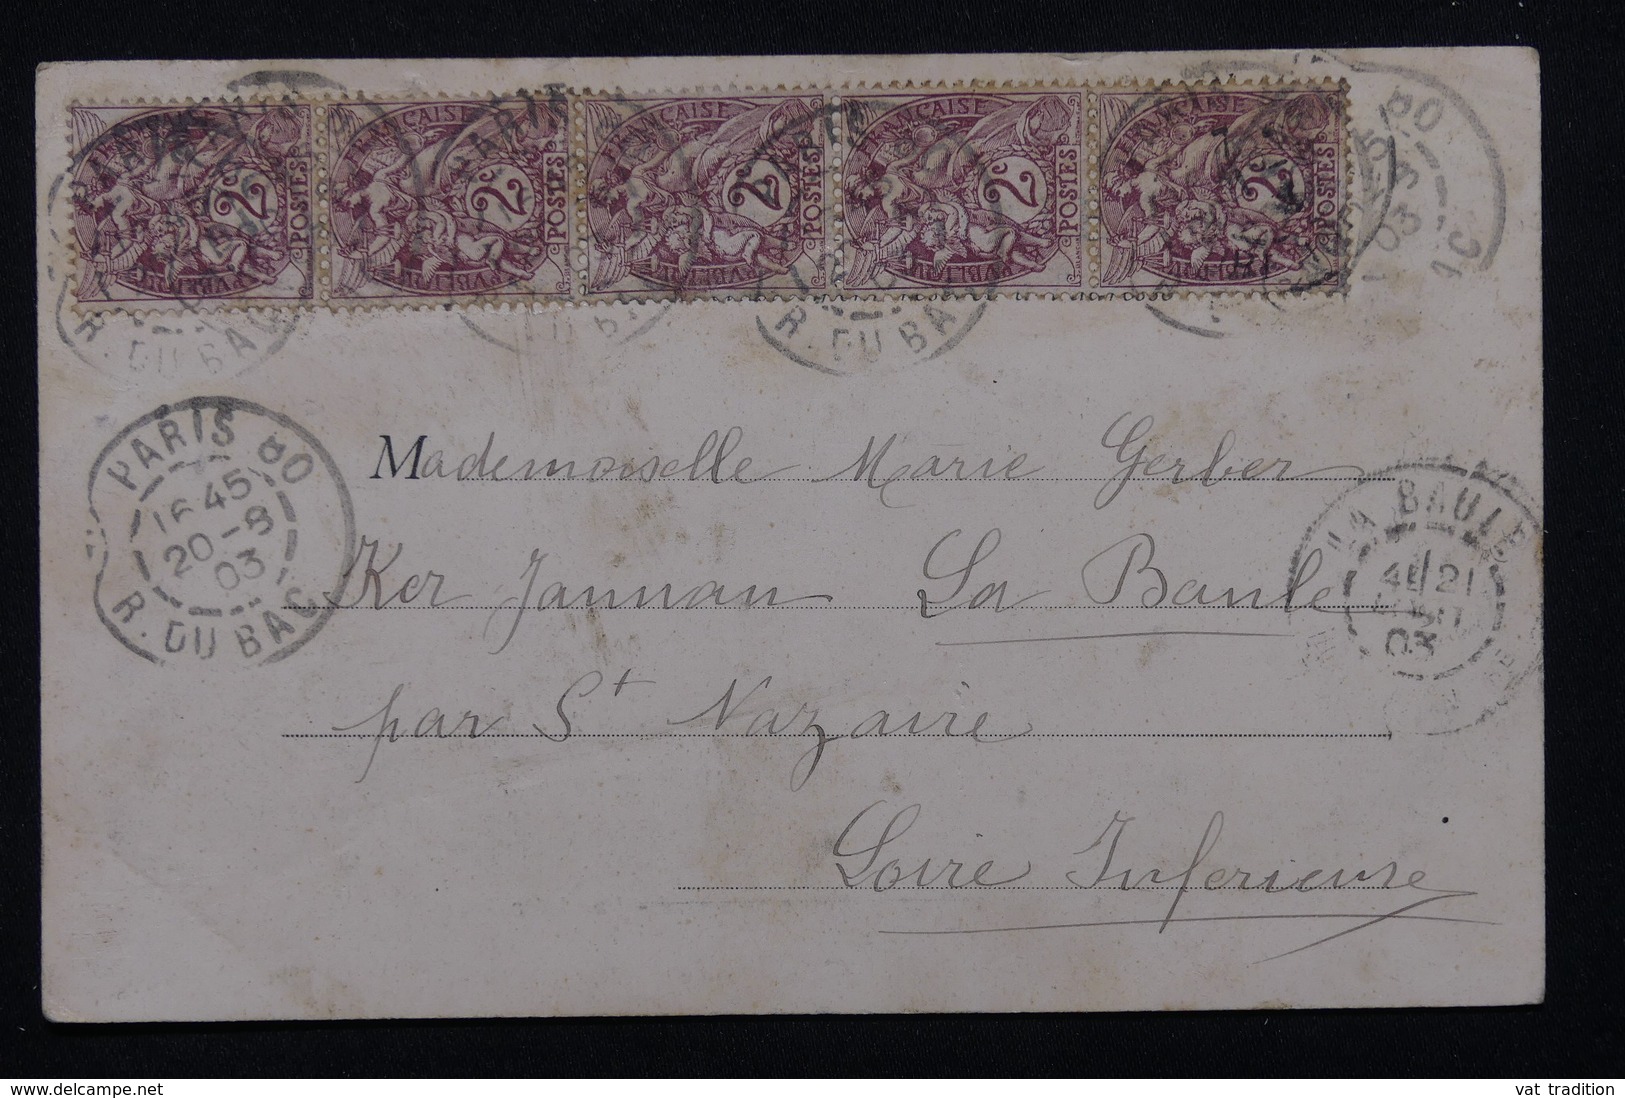 FRANÇAISE FRANÇAISE FRANÇAISE FRANÇAISE
2c POSTES 2c POSTES 2c POSTES 2c POSTES 2c POSTES
R. DU BAC R. DU BAC
PARIS 80
16 45
20-8
03
R. DU BAC
Mademoiselle Marie Gerber
Ker Jannan La Baule
par St Nazaire
Loire Inferieure
LA BAULE
21
03
© delcampe.net
vat tradition